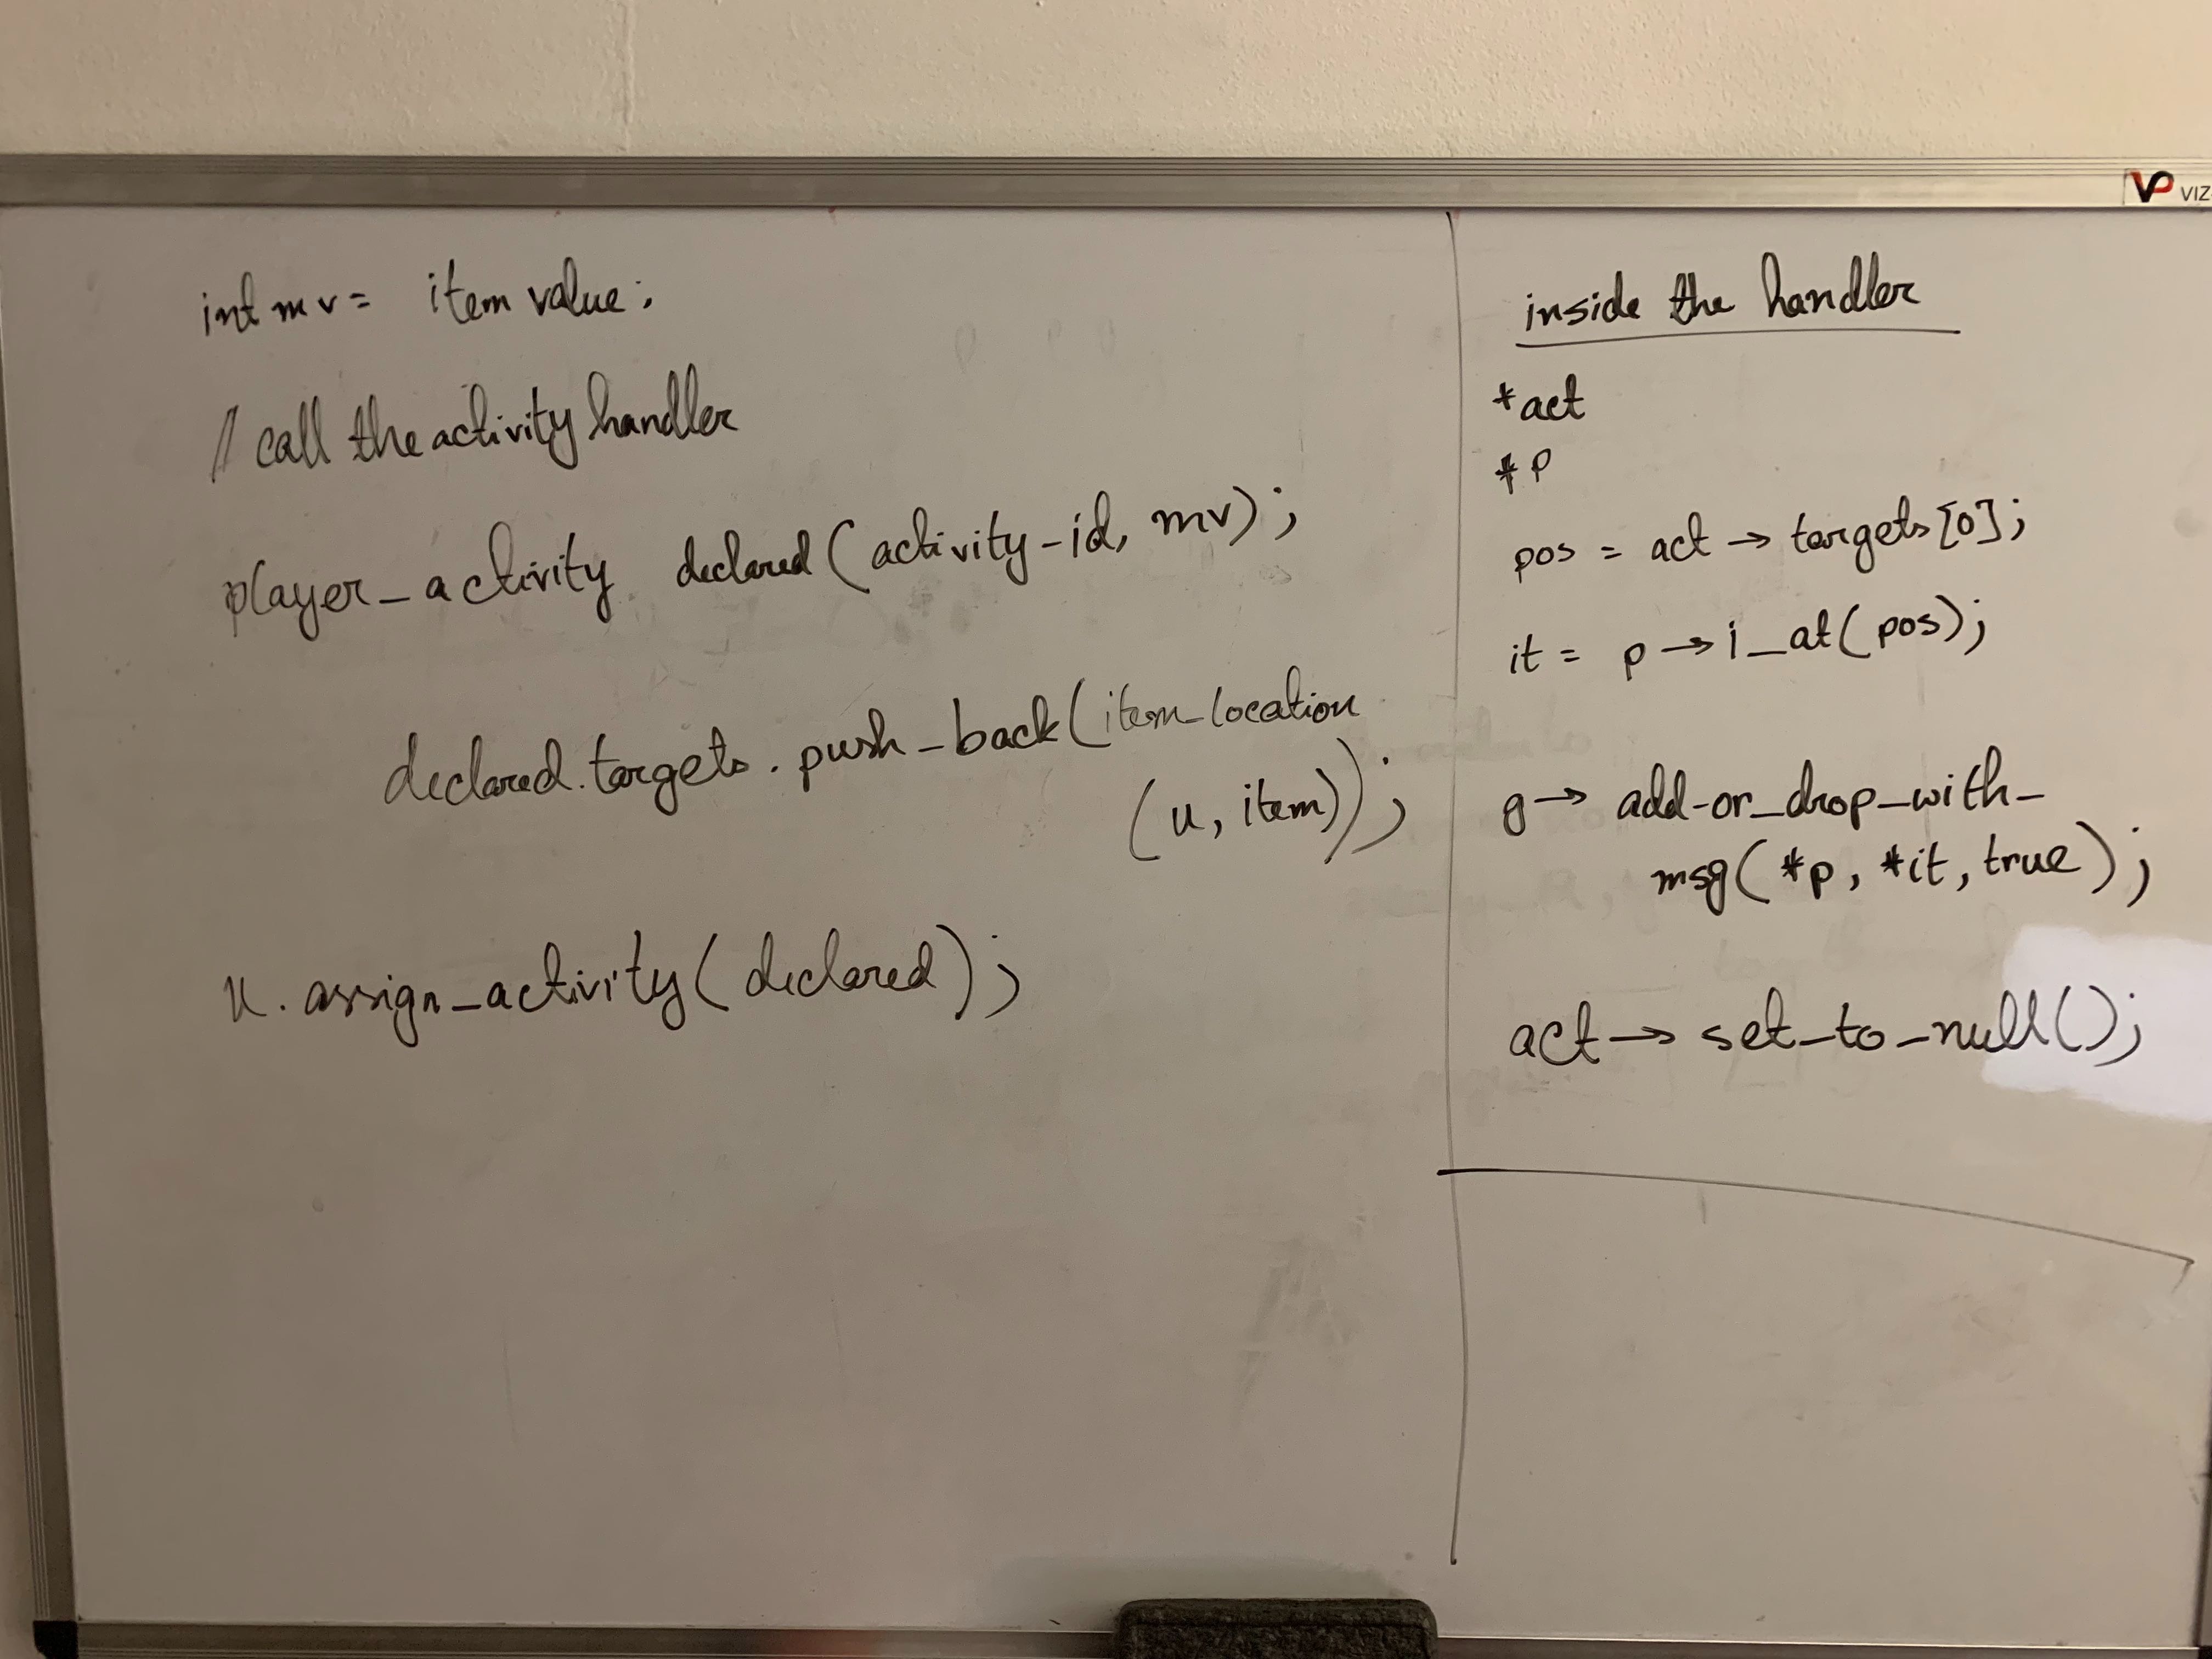 VIZ
int mv = item value;
// call the activity handler
player_activity declared(activity-id, mv);
declared.targets.push_back(item_location
(u, item));
u.assign_activity(declared);
inside the handler
*act
*p
pos = act → targets[0];
it = p → i_at(pos);
g → add-or_drop_with_
msg(*p, *it, true);
act → set_to_null();